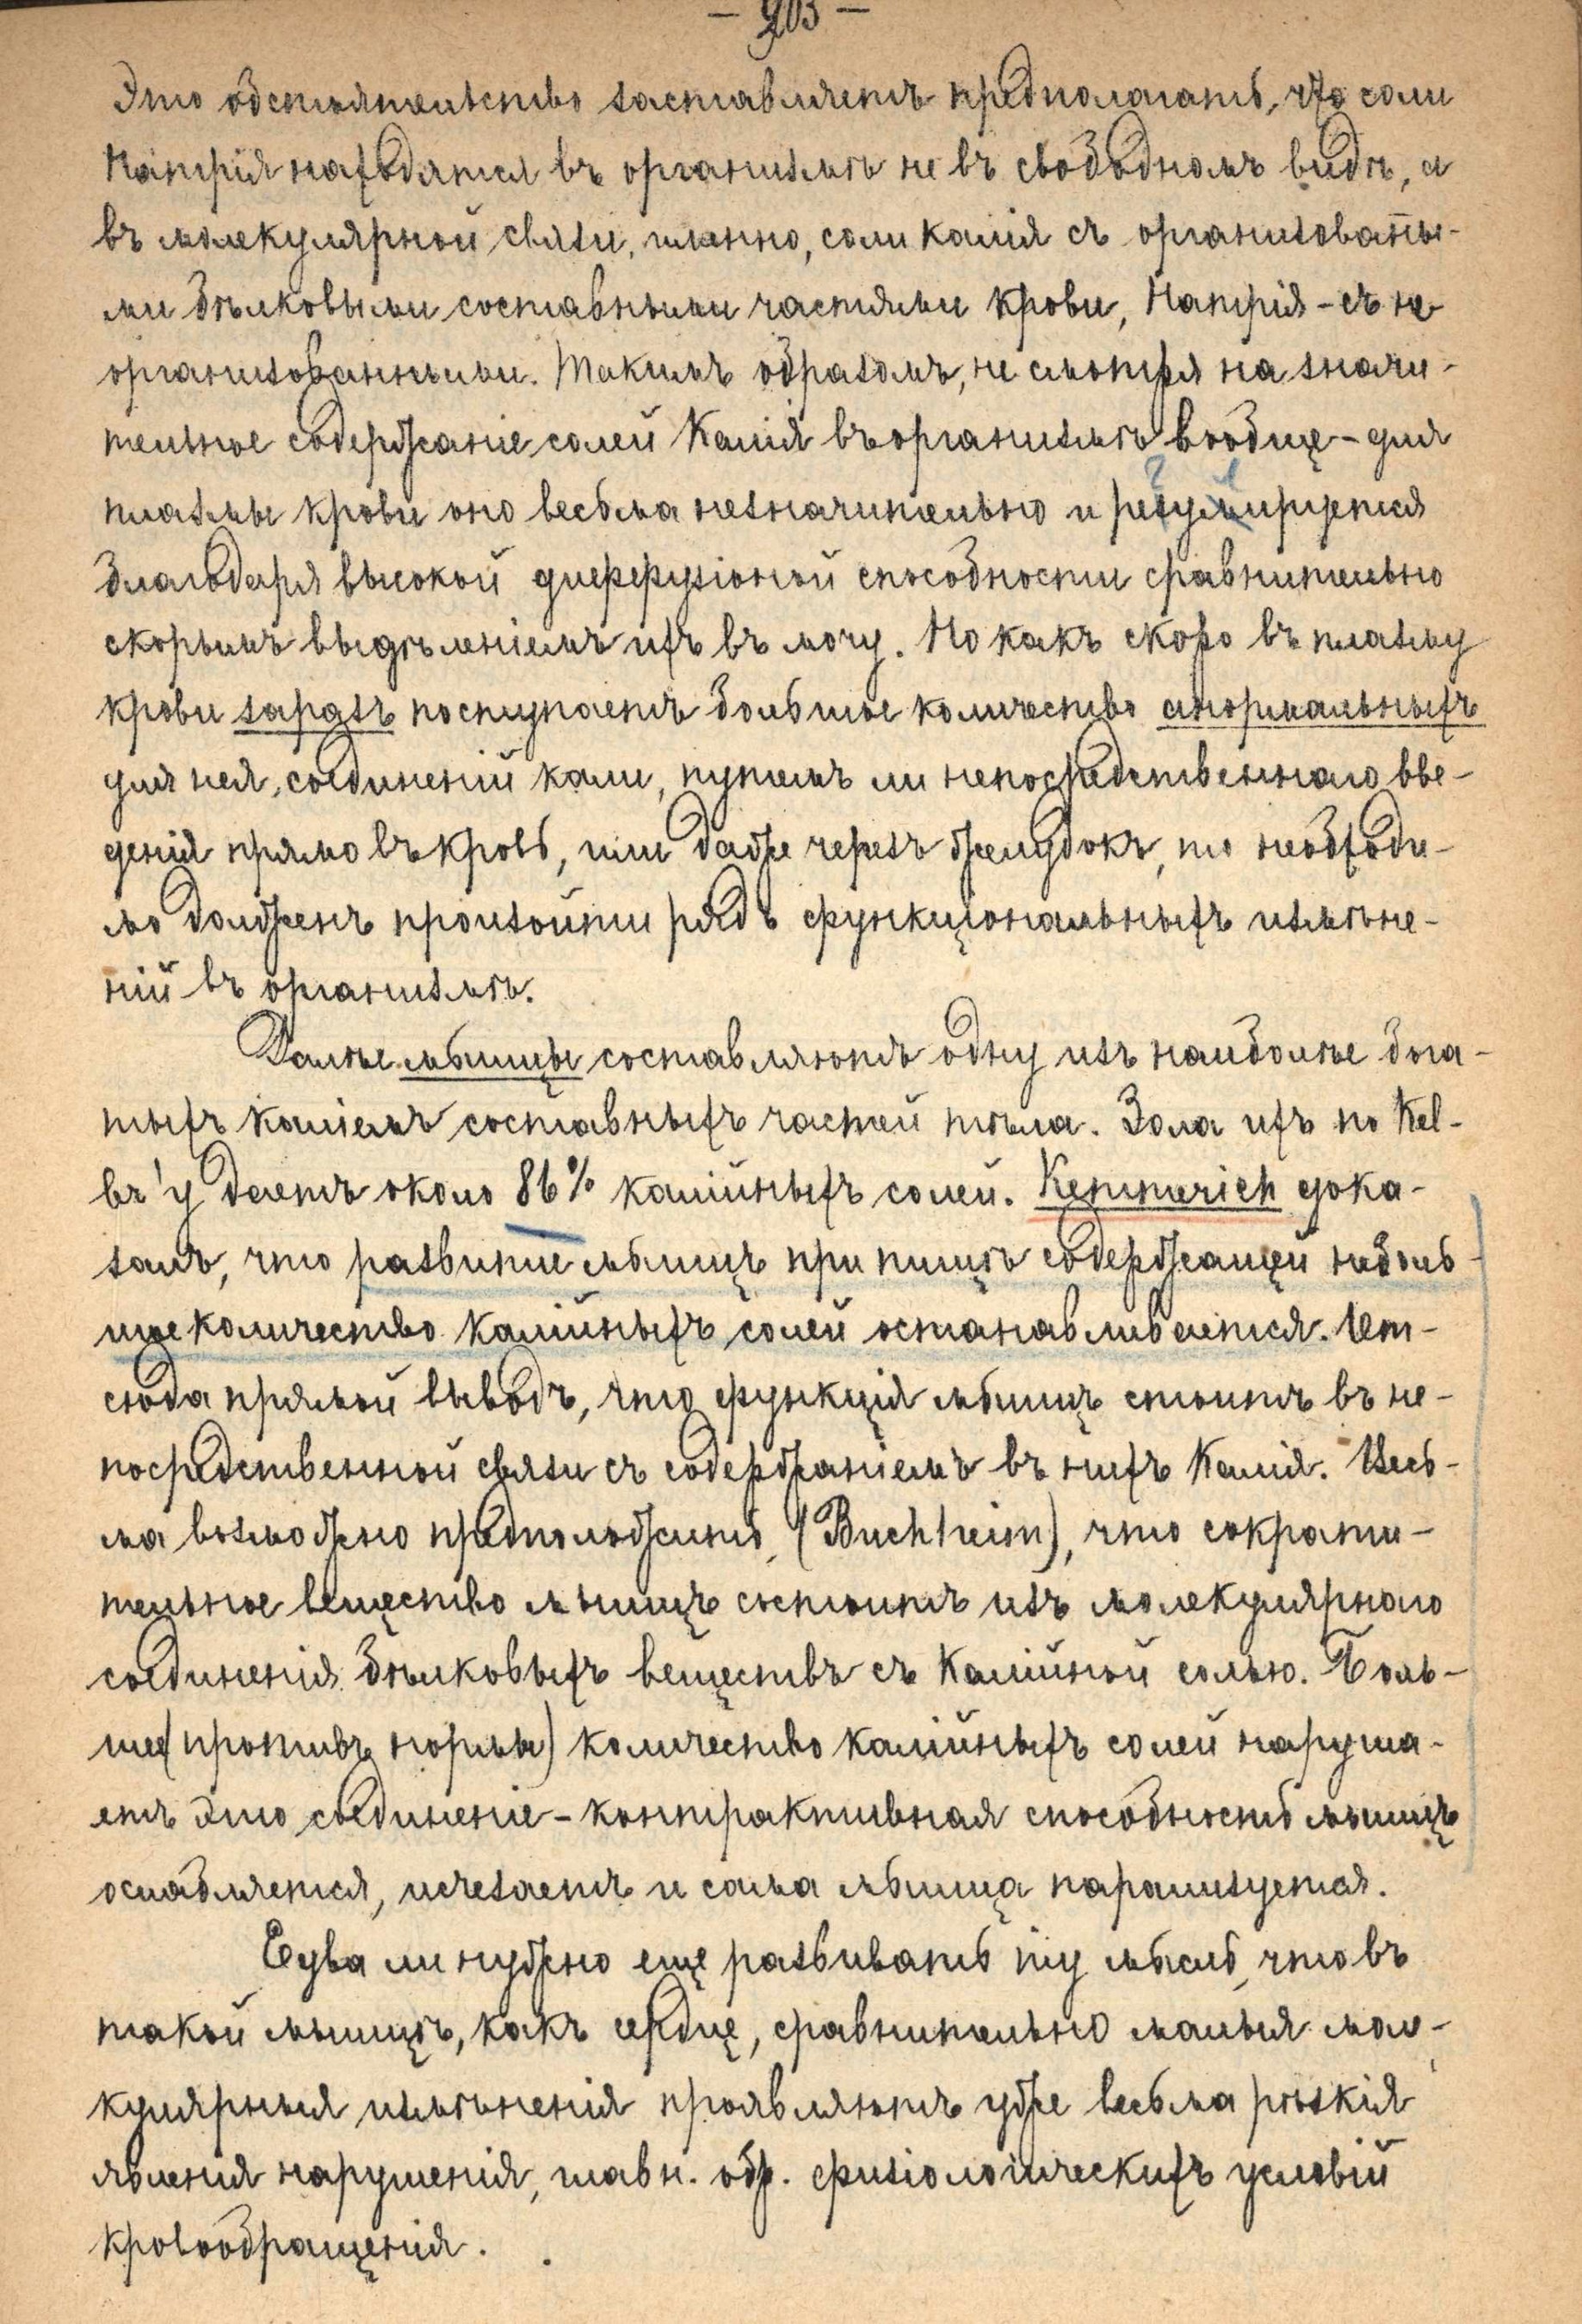 — 203 —
Это обстоятельство заставляетъ предполагать, что соли
Натрія находятся въ организмѣ не въ свободномъ видѣ, а
въ молекулярной связи, именно, соли калія съ организован̄ны-
ми бѣлковыми составными частями крови, Натрія – съ не
организованными. Такимъ образомъ, не смотря на значи-
тельное содержаніе солей Калія въ организмѣ вообще – для
плазмы крови оно весьма незначительно и регулируется
благодаря высокой диффузіоной способности сравнительно
скорымъ выдѣленіемъ ихъ въ мочу. Но какъ скоро въ плазму
крови заразъ поступаетъ большое количество анормальныхъ
для нея, соединеній кали, путемъ ли непосредственнаго вве-
денія прямо въ кровь, или даже черезъ желудокъ, то необходи-
мо долженъ произойти рядъ функціональныхъ измѣне-
ній въ организмѣ.
Далѣе мышцы составляютъ одну изъ наиболѣе бога-
тыхъ каліемъ составныхъ частей тѣла. Зола ихъ по Kel-
въ'у даетъ около 86% калійныхъ солей. Kemmerich дока-
залъ, что развитие мышцъ при пищѣ содержащей неболь-
шое количество калійныхъ солей останавливается. От-
сюда прямой выводъ, что функція мышцъ стоитъ въ не-
посредственной связи съ содержаніемъ въ нихъ Калія. Весь-
ма возможно предположить, (Buchheim), что сократи-
тельное вещество мышцъ состоитъ изъ молекулярнаго
соединенія бѣлковыхъ веществъ съ Калійной солью. Боль-
шее (противъ нормы) количество калійныхъ солей наруша-
етъ это соединеніе – контрактивная способность мышцъ
ослабляется, исчезаетъ и сама мышца парализуется.
Едва ли нужно еще развивать ту мысль, что въ
такой мышцѣ, какъ сердце, сравнительно малыя моле-
кулярныя измѣненія проявляютъ уже весьма рѣзкія
явленія нарушенія, главн. обр. физіологическихъ условій
кровообращенія.